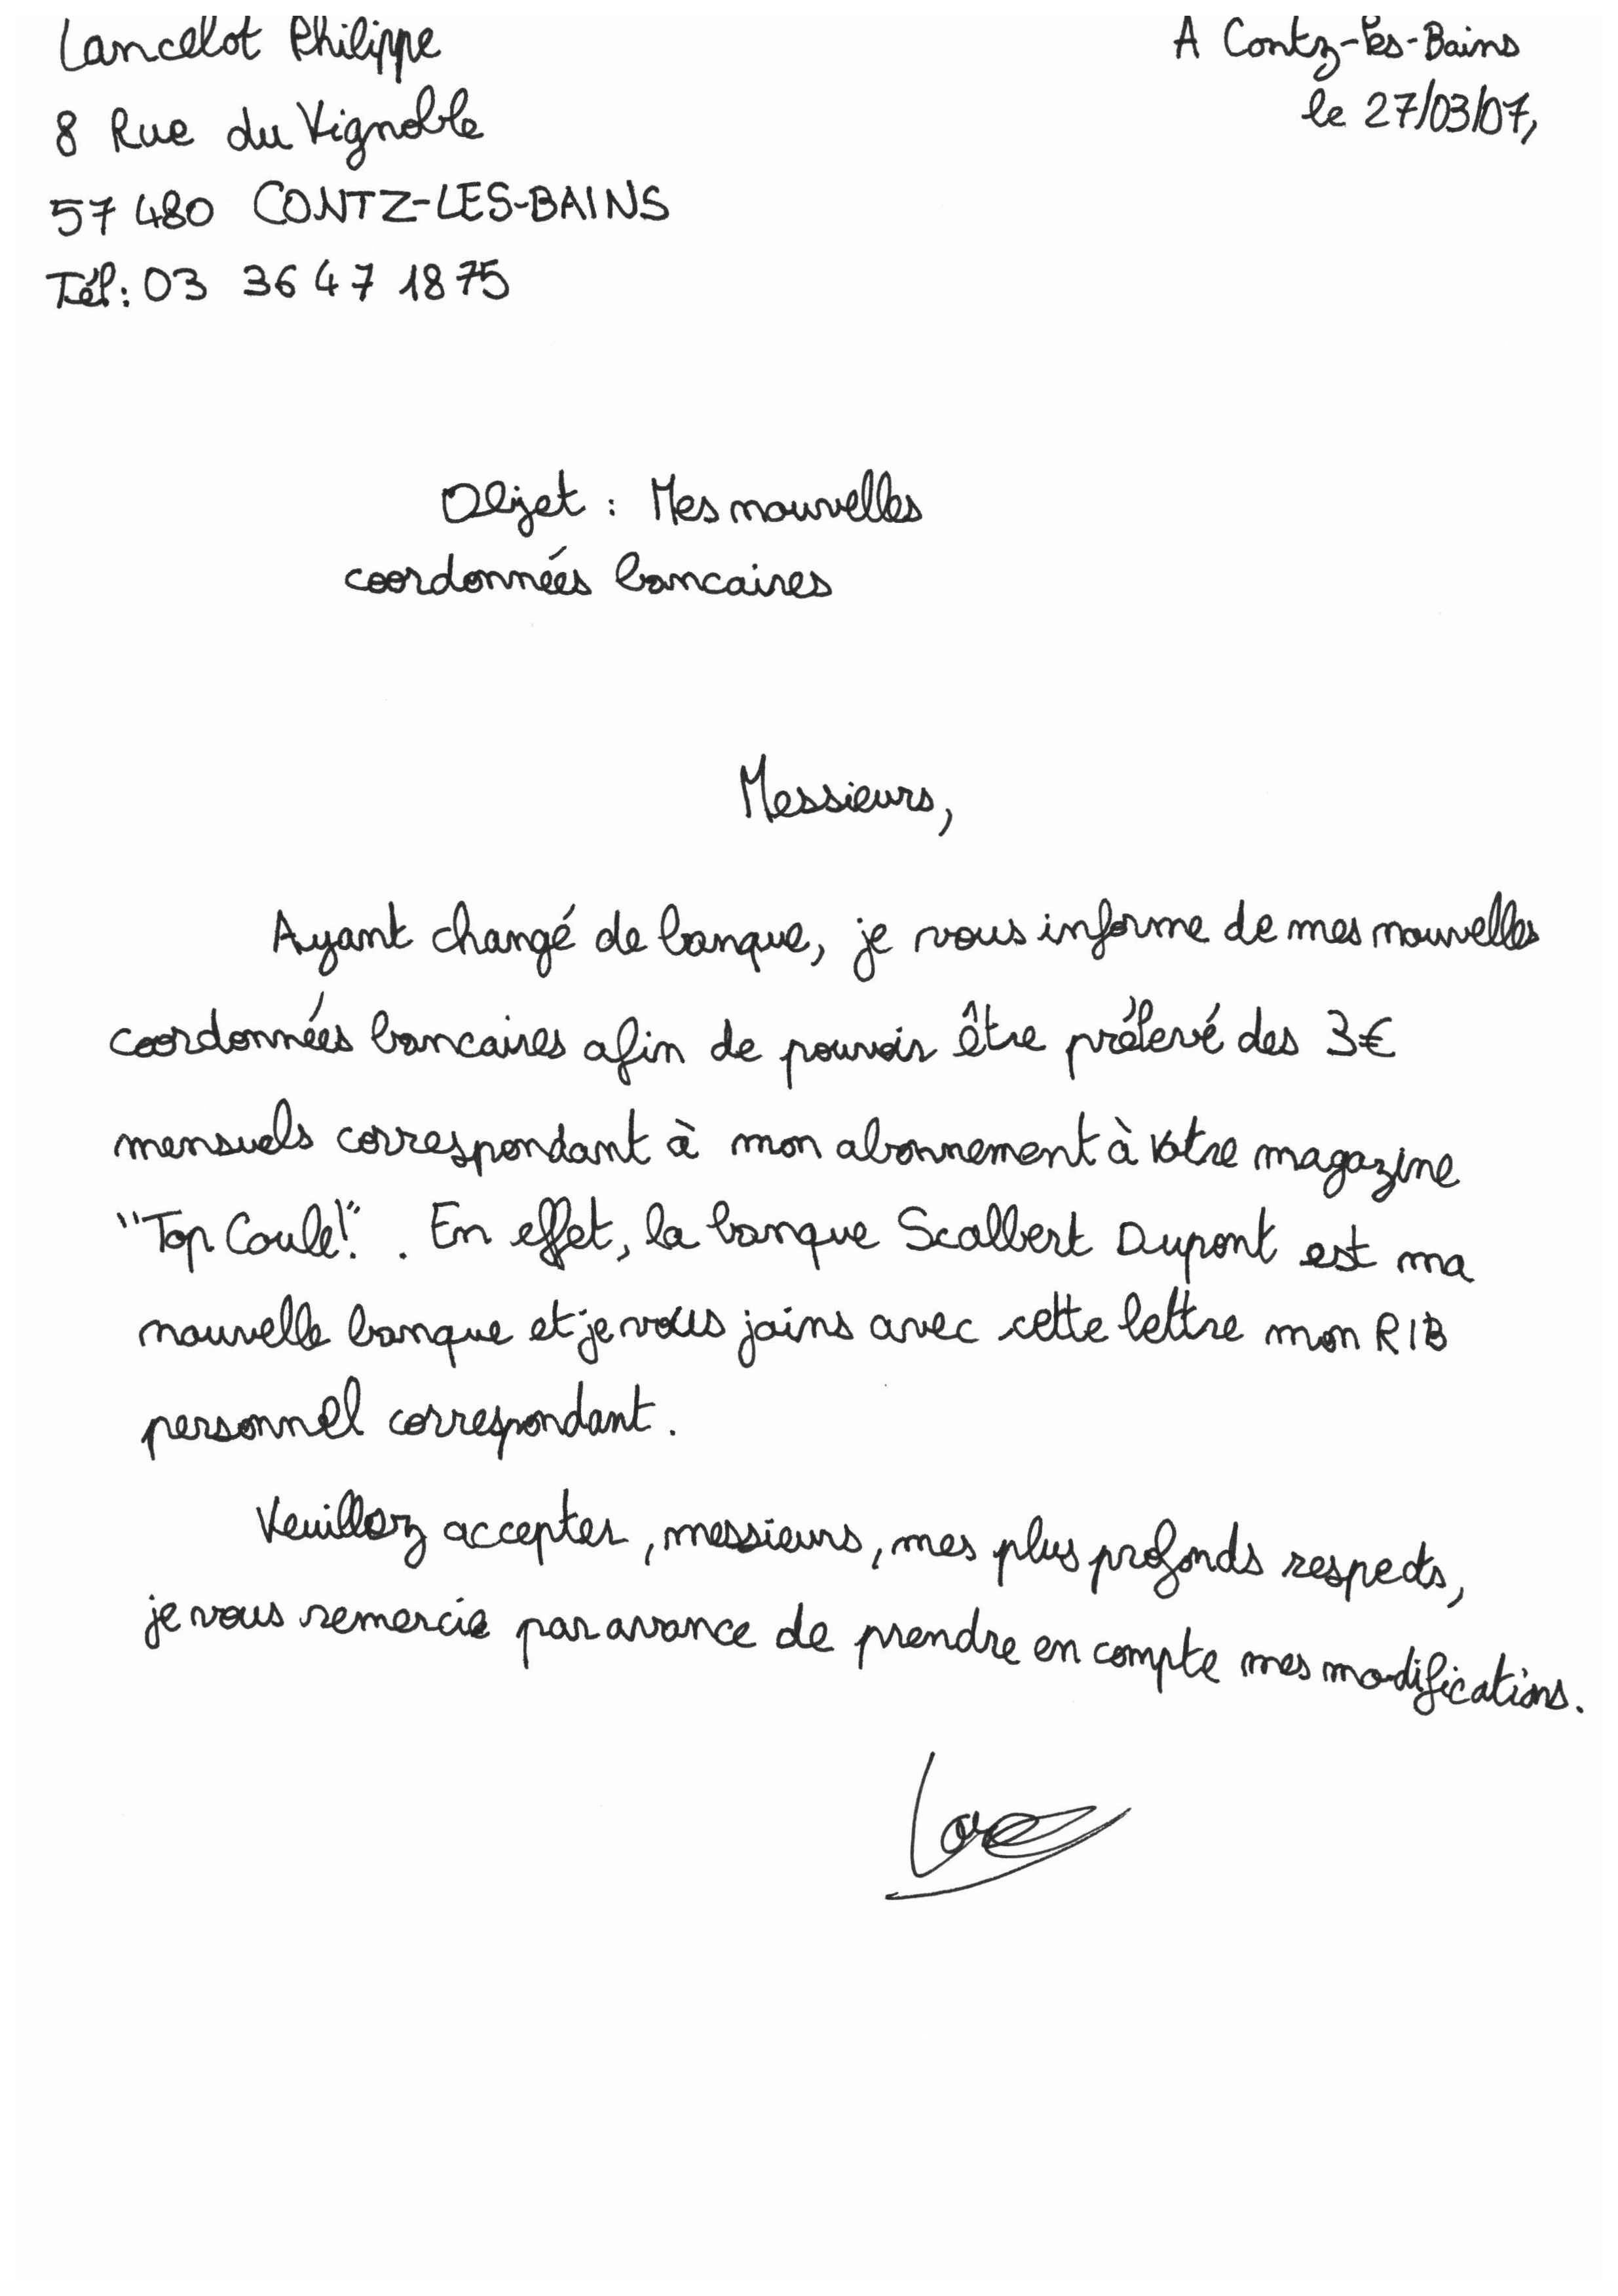 Lancelot Philippe
A Contz-les-Bains
8 Rue du Vignoble
le 27/03/07,
57480 CONTZ-LES-BAINS
Tél: 03 36 47 18 75
Objet : Mes nouvelles
coordonnées bancaires
Messieurs,
Ayant changé de banque, je vous informe de mes nouvelles
coordonnées bancaires afin de pouvoir être prélevé des 3€
mensuels correspondant à mon abonnement à votre magazine
"Top Coule!". En effet, la banque Scalbert Dupont est ma
nouvelle banque et je vous joins avec cette lettre mon RIB
personnel correspondant.
Veuillez accepter, messieurs, mes plus profonds respects,
je vous remercie par avance de prendre en compte mes modifications.